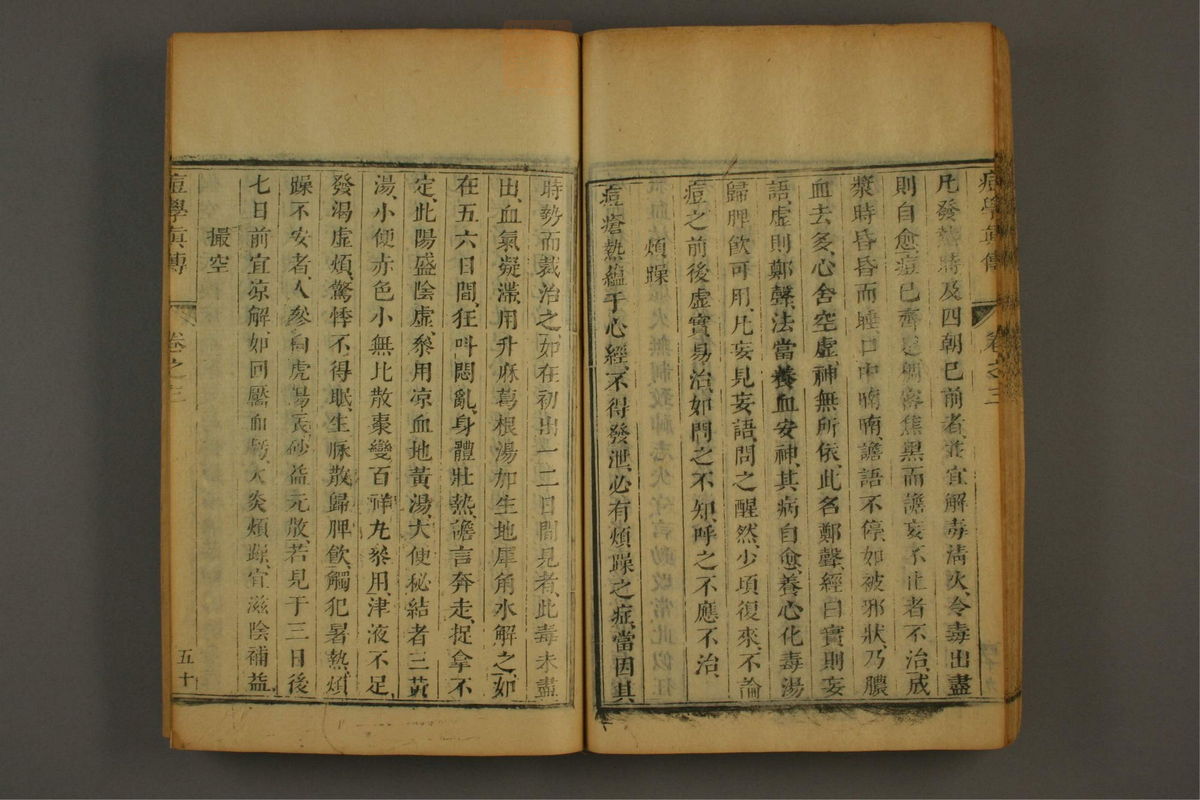 痘學眞傳 卷之三
凡發熱時及四朝已前者並宜解毒淸火令毒出盡
則自愈痘已齊焦黑而譫妄不止者不治成
漿時昏昏而睡口中喃喃譫語不停如被邪狀乃膿
血去多心舍空虛神無所依此名鄭聲經曰實則妄
語虛則鄭聲法當養血安神其病自愈養心化毒湯
歸脾飮可用凡妄見妄語問之醒然少頃復來不論
痘之前後虛實易治如問之不知呼之不應不治
煩躁
痘瘡熱蘊于心經不得發泄必有煩躁之症當因其
時勢而裁治之如在初出一二日間見者此毒未盡
出血氣凝滯用升麻葛根湯加生地犀角水解之如
在五六日間狂叫悶亂身體壯熱譫言奔走捉拿不
定此陽盛陰虛叅用凉血地黃湯大便秘結者三黃
湯小便赤色小無比散棗變百祥丸叅用津液不足
發渴虛煩驚悸不得眠生脉散歸脾飮觸犯暑熱煩
躁不安者人參白虎湯辰砂益元散若見于三日後
七日前宜凉解如回靨血虧火炎煩躁宜滋陰補益
撮空
痘學眞傳 卷之三 五十